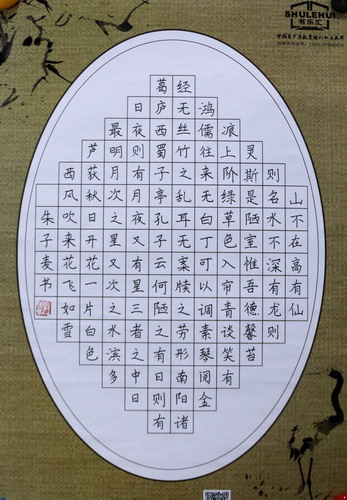 SHULEHUI
书乐汇
山不在高有仙
则名水不深有龙则
灵斯是陋室惟吾德馨苔
痕上阶绿草色入帘青谈笑有
鸿儒往来无白丁可以调素琴阅金
经无丝竹之乱耳无案牍之劳形南阳诸
葛庐西蜀子亭孔子云何陋之有日则有
日夜则有月夜又有星三者之中日
最明月次之星又次之水滨多
芦荻秋日开花一片白色
西风吹来花飞如雪
朱子麦书